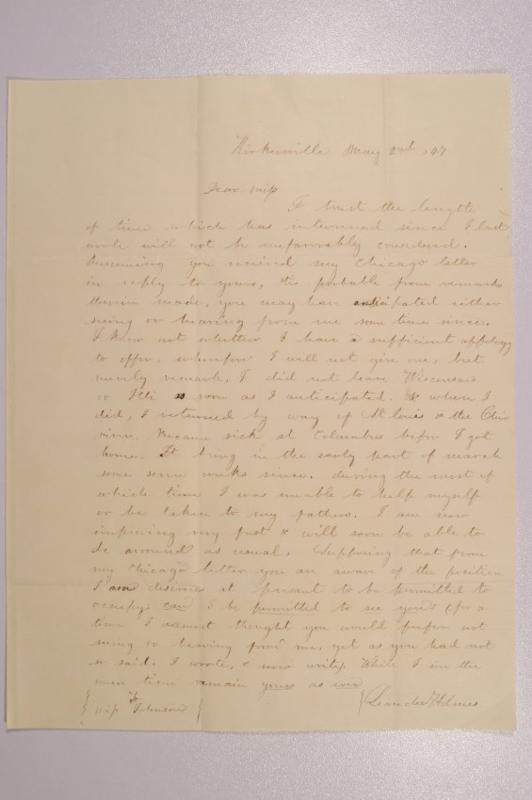 Kirkersville May 2nd /47
Dear Miss
I trust the length
of time which has intervened since I last
wrote will not be unfavorably considered.
Assuming you received my Chicago letter
in reply to yours, tis probable from remarks
therein made, you may have anticipated either
seeing or hearing from me some time since.
I know not whether I have a sufficient appology
to offer, wherefore I will not give one, but
merely remark, I did not leave Wisconsin
or Ills as soon as I anticipated. & when I
did, I returned by way of St louis & the Ohio
river. Became sick at Columbus before I got
home. It being in the early part of march
some seven weeks since. during the most of
which time I was unable to help myself
or be taken to my fathers. I am now
improving very fast & will soon be able to
be around as usual. Supposing that from
my Chicago letter you are aware of the position
I am desirous at present to be permitted to
occupy. can I be permitted to see you? (for a
time I thought you would prefer not
seeing or hearing from me, yet as you had not
so said. I wrote, & now write) While I in the
mean time remain yours as ever
Miss Johnson
Leander Holmes